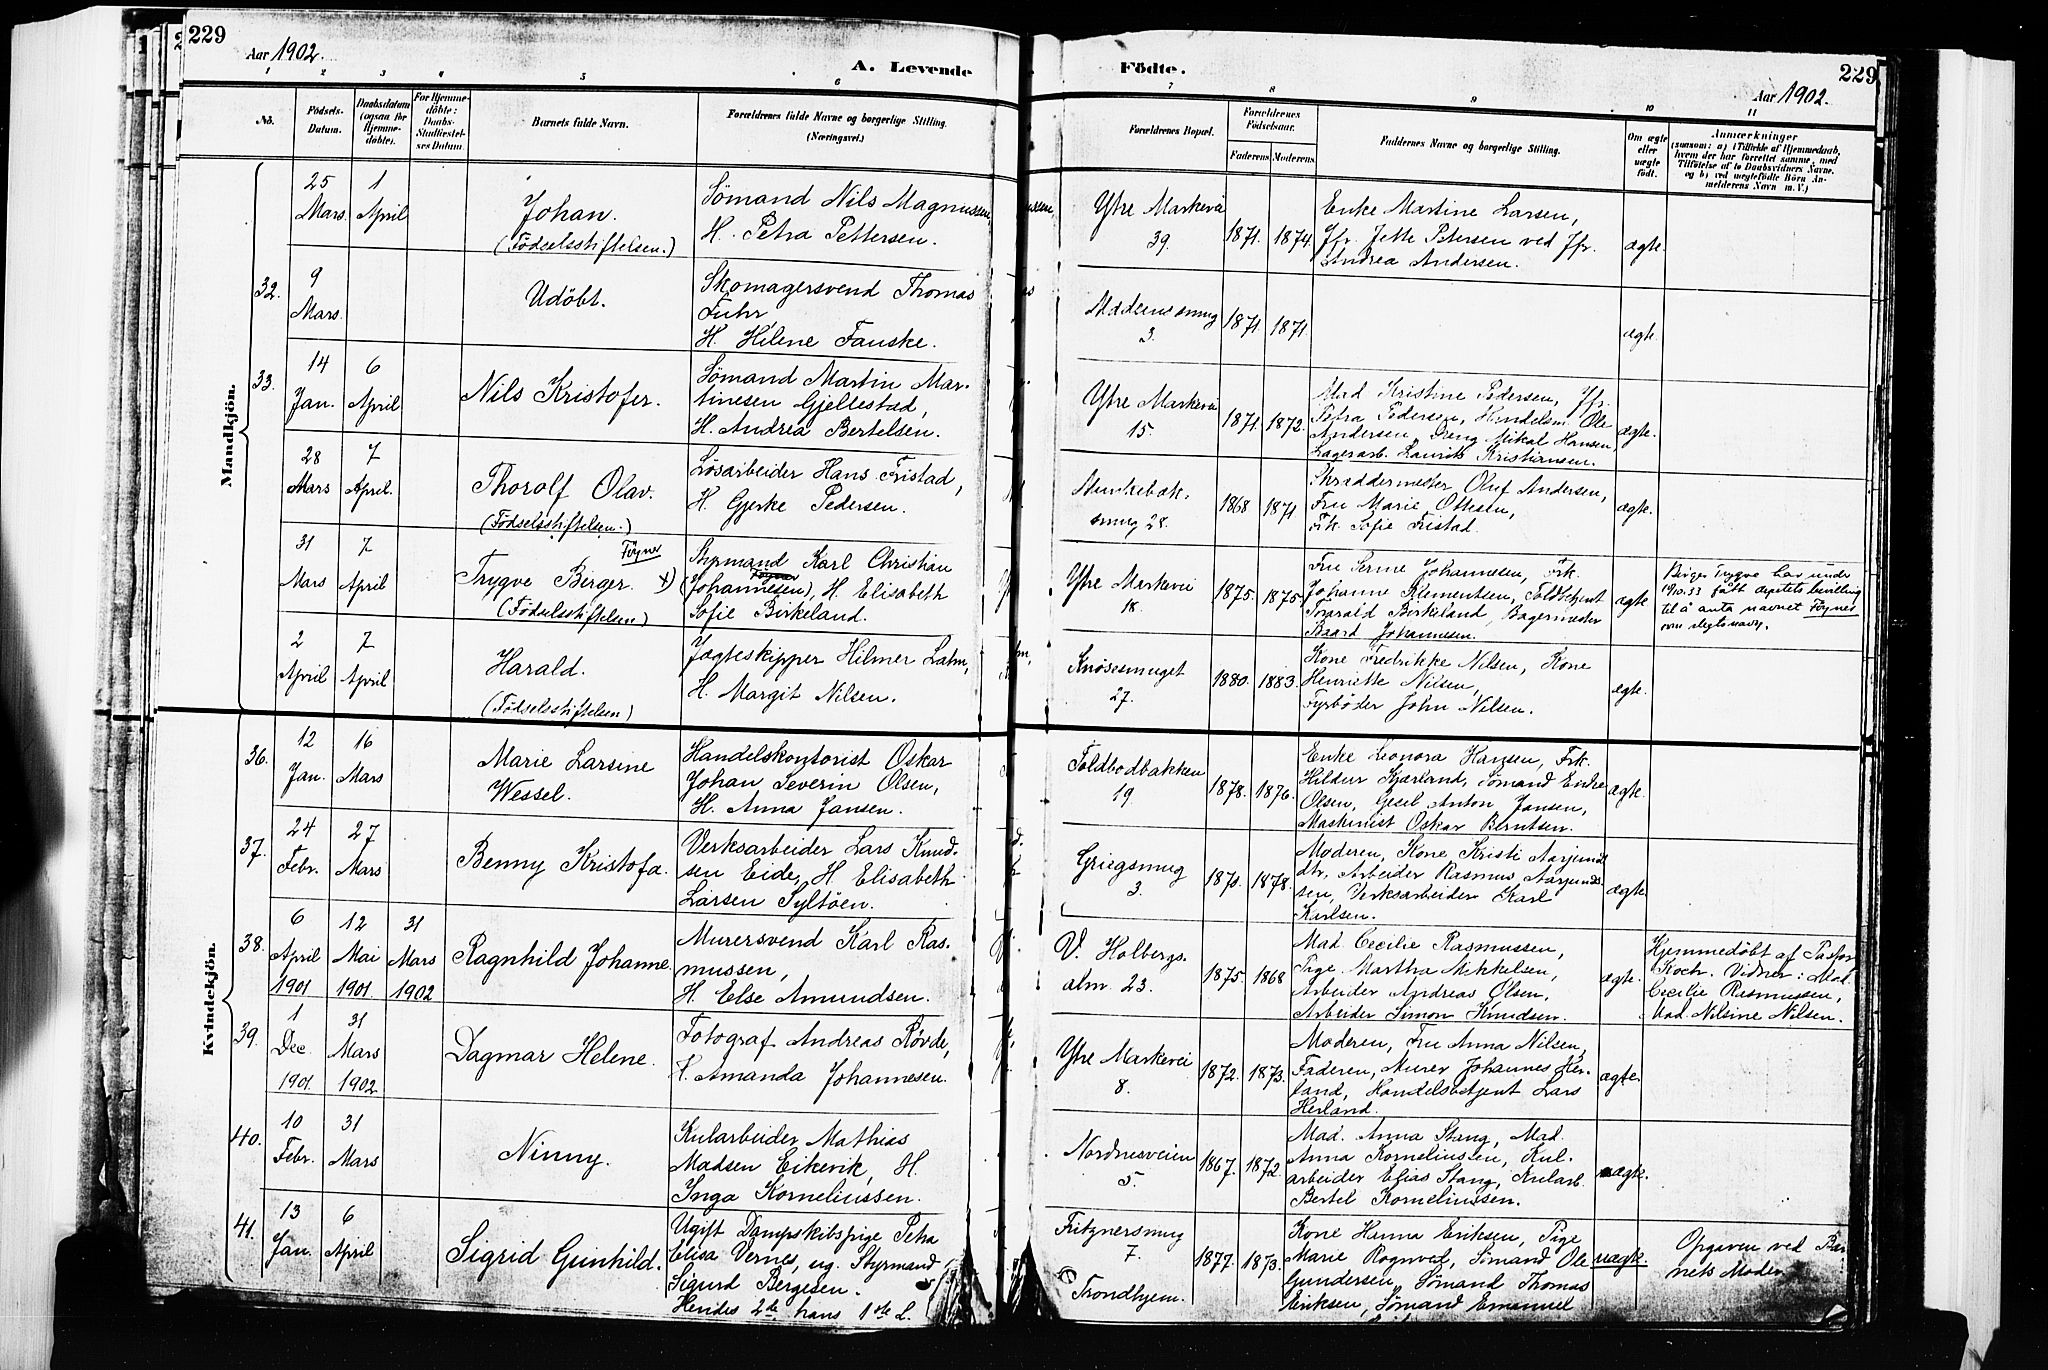 229
Aar 1902.
A. Levende
1 2 3 4 5 6
No.
Födsels-
Datum.
Daabsdatum
(ogsaa for
Hjemme-
döbte).
For Hjemme-
döbte:
Daabs-
Stadfæstel-
ses Datum.
Barnets fulde Navn.
Forældrenes fulde Navne og borgerlige Stilling.
(Næringsvei.)
Mandkjön.
25
Mars.
1
April
Johan.
(Födselsstiftelsen.)
Sömand Nils Magnussen,
H. Petra Pettersen.
32.
9
Mars.
Udöbt.
Skomagersvend Thomas
Fuhr,
H. Helene Fauske.
33.
14
Jan.
6
April
Nils Kristofer.
Sömand Martin Mar-
tinesen Gjellestad,
H. Andrea Bertelsen.
28
Mars
7
April.
Thorolf Olav.
(Födselsstiftelsen.)
Lösarbeider Hans Fristad,
H. Gjerke Pedersen.
31
Mars
7
April
Föyner
Trygve Birger. x)
(Födselsstiftelsen)
Styrmand Karl Christian
(Johannesen), H. Elisabeth
Sofie Birkeland.
2
April
7
April
Harald.
(Födselsstiftelsen)
Jægteskipper Hilmer Lahm,
H. Margit Nilsen.
Kvindekjön.
36.
12
Jan.
16
Mars
Marie Larsine
Wessel.
Handelskontorist Oskar
Johan Severin Olsen,
H. Anna Jansen.
37.
24
Febr.
27
Mars
Benny Kristofa.
Verksarbeider Lars Knud-
sen Eide, H. Elisabeth
Larsen Syltöen.
38.
6
April
1901
12
Mai
1901
31
Mars
1902
Ragnhild Johanne.
Murersvend Karl Ras-
mussen,
H. Else Amundsen.
39.
1
Dec.
1901.
31
Mars
1902.
Dagmar Helene.
Fotograf Andreas Rövde,
H. Amanda Johannesen.
40.
10
Febr.
31
Mars
Ninny.
Kularbeider Mathias
Madsen Eikevik, H.
Inga Korneliussen.
41.
13
Jan.
6
April
Sigrid Gunhild.
Ugift Dampskibspige Petra
Elisa Vernes, ug. Styrmand
Sigurd Bergesen.
Hendes 2de, hans 1ste L.
Födte.
229
Aar 1902.
7 8 9 10 11
Forældrenes Bopæl.
Forældrenes
Födselsaar.
Faderens. Moderens.
Faddernes Navne og borgerlige Stilling.
Om ægte
eller
uægte
födt.
Anmærkninger
(saasom: a) i Tilfælde af Hjemmedaab,
hvem der har forrettet samme, med
Tilföielse af to Daabsvidners Navne,
og b) ved uægtefödte Börn An-
melderens Navn m. V.)
Ytre Markevei
39.
1871. 1874.
Enke Martine Larsen,
Jfr. Jette Petersen ved Jfr.
Andrea Andersen.
ægte.
3.
1871. 1871.
ægte.
Ytre Markevei
15.
1871. 1872.
Mad Kristine Pedersen, Jfr.
Petra Pedersen, Handelsm. Ole
Andersen, Dreng Mikal Hansen,
Lagerarb. Laurits Kristiansen.
ægte.
Munkebæk-
smug 28.
1868 1871
Skreddermester Oluf Andersen,
Fru Marie Ottesen,
Frk. Sofie Fristad.
ægte.
Ytre Markevei
18.
1875. 1875.
Fru Serine Johannesen, Frk.
Johanne Klementsen, Toldbetjent
Torvald Birkeland, Bagermester
Baard Johannesen.
ægte
Birger Trygve har under
19/10.33 fått deptets bevilling
til å anta navnet Föyner
som slegtsnavn.
Knösesmuget
27.
1880. 1883.
Kone Fredrikke Nilsen, Kone
Henriette Nilsen,
Fyrböder John Nilsen.
ægte.
Toldbodbakken
19.
1878. 1876.
Enke Leonora Hansen, Frk.
Hildur Kjærland, Sömand Enoke
Olsen, Gesel Anton Jansen,
Maskinist Oskar Berntsen.
ægte.
Griegsmug
3.
1870. 1878.
Moderen, Kone Kristi Aarjemds
dtr, Arbeider Rasmus Aarjemds-
sen, Verksarbeider Karl
Karlsen.
ægte.
V. Holbergs-
alm. 23.
1875. 1868
Mad. Cecilie Rasmussen,
Pige Martha Mikkelsen,
Arbeider Andreas Olsen,
Arbeider Simon Knudsen.
ægte.
Hjemmedöbt af Pastor
Koch. Vidner: Mad.
Cecilie Rasmussen,
Mad. Nilsine Nilsen.
Ytre Markevei
8.
1872. 1873.
Moderen, Fru Anna Nilsen,
Faderen, Murer Johannes Her-
land, Handelsbetjent Lars
Herland.
ægte.
Nordnesveien
5.
1867. 1872.
Mad. Anna Stang, Mad.
Anna Korneliussen, Kul-
arbeider Elias Stang, Kularb.
Bertel Korneliussen.
ægte.
Fritznersmug
7.
Trondhjem.
1877. 1873.
Kone Hanna Eriksen, Pige
Marie Rognved, Sömand Ole
Gundersen, Sömand Thomas
Eriksen, Sömand Emanuel
uægte.
Opgaven ved Bar
nets Moder